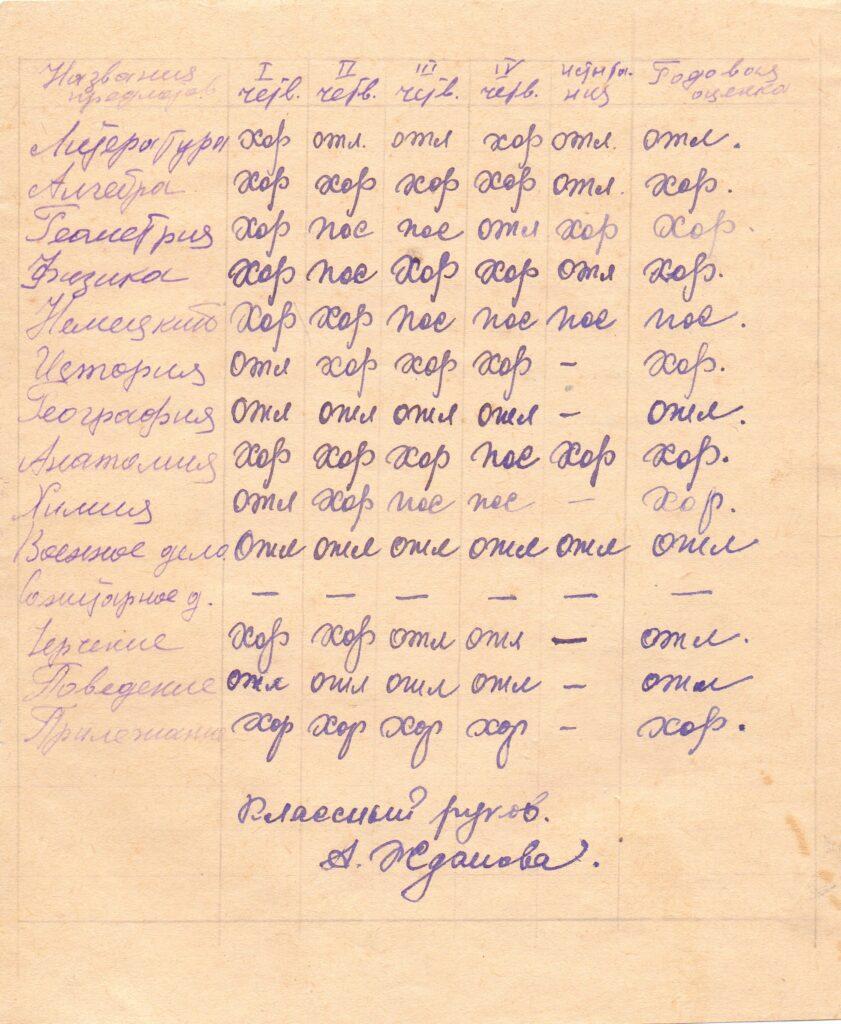 Названия предметов I четв. II четв. III четв. IV четв. испыта-ния Годовая оценка
Литература хор отл. отл хор отл. отл.
Алгебра хор хор хор хор отл. хор.
Геометрия хор пос пос отл хор хор.
Физика хор пос хор хор отл хор.
Немецкий хор хор пос пос пос пос.
История отл хор хор хор – хор.
География отл отл отл отл – отл.
Анатомия хор хор хор пос хор хор.
Химия отл хор пос пос – хор.
Военное дело отл отл отл отл отл отл
Санитарное д. – – – – – –
Черчение хор хор отл отл – отл.
Поведение отл отл отл отл – отл
Прилежание хор хор хор хор – хор.
Классный руков.
А. Жданова.